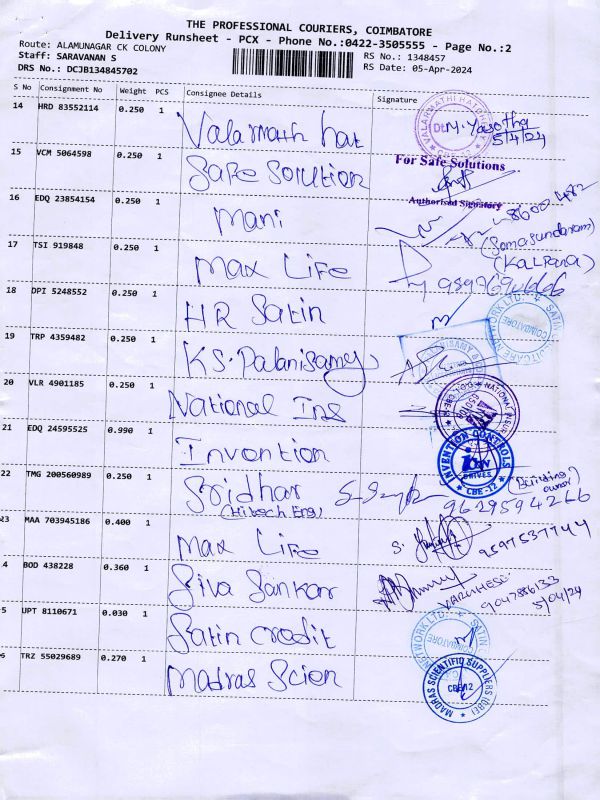 THE PROFESSIONAL COURIERS, COIMBATORE
Delivery Runsheet - PCX - Phone No.:0422-3505555 - Page No.:2
Route: ALAMUNAGAR CK COLONY
Staff: SARAVANAN S
RS No.: 1348457
DRS No.: DCJB134845702
RS Date: 05-Apr-2024
S No Consignment No Weight PCS Consignee Details Signature
14 HRD 83552114 0.250 1 Valarmath hat
M. Yasotha
5/4/24
15 VCM 5064598 0.250 1 Safe Solution
For Safe Solutions
Authorised Signatory
16 EDQ 23854154 0.250 1 Mani
(Somasundaram)
17 TSI 919848 0.250 1 Max Life
(Kalpana)
18 DPI 5248552 0.250 1 HR Satin
19 TRP 4359482 0.250 1 KS. Palanisamy
20 VLR 4901185 0.250 1 National Ins
21 EDQ 24595525 0.990 1 Invention
INVENTION CONTROLS
DRIVES
CBE-12
22 TMG 200560989 0.250 1 Sridhar
(Hitech Eng)
(Building owner)
9629594266
23 MAA 703945186 0.400 1 Max Life
9597537744
4 BOD 438228 0.360 1 Siva Sankar
9047886133
5/04/24
5 UPT 8110671 0.030 1 Satin credit
6 TRZ 55029689 0.270 1 Madras Scien
MADRAS SCIENTIFIC SUPPLIERS (CBE)
CBE-12